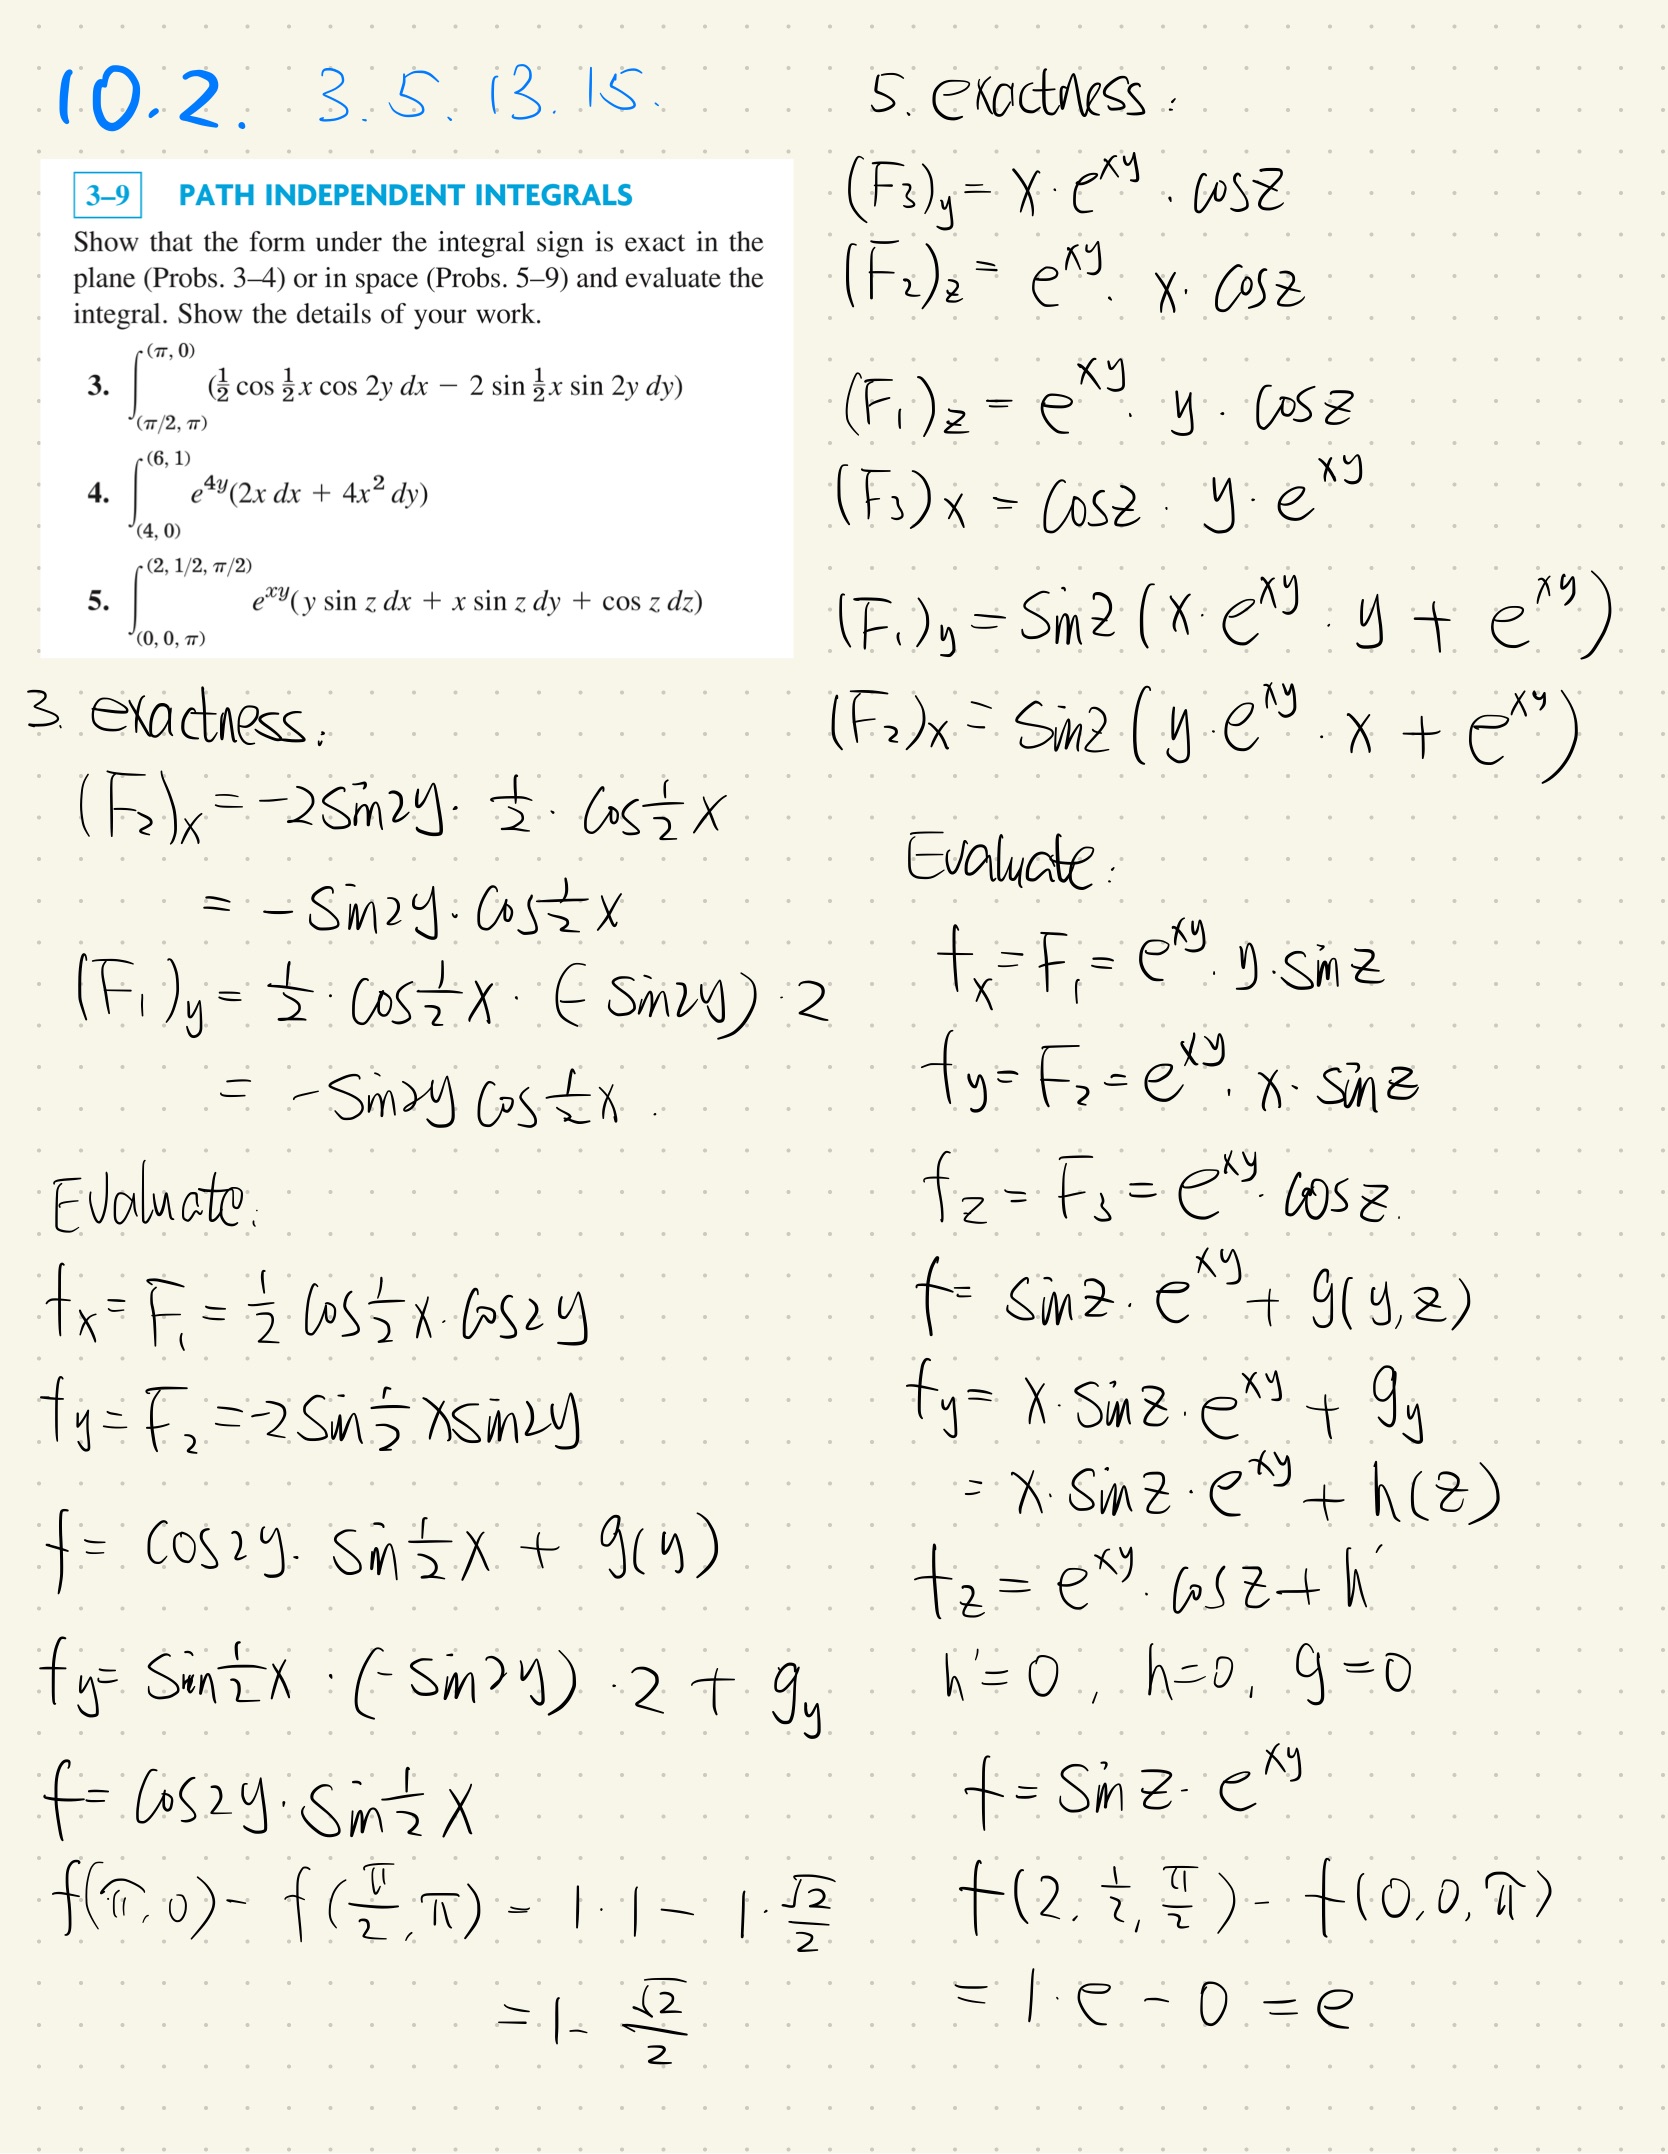 10.2. 3. 5. 13. 15.
3–9 PATH INDEPENDENT INTEGRALS
Show that the form under the integral sign is exact in the
plane (Probs. 3–4) or in space (Probs. 5–9) and evaluate the
integral. Show the details of your work.
3. ∫_(π/2, π)^(π, 0) (½ cos ½x cos 2y dx − 2 sin ½x sin 2y dy)
4. ∫_(4, 0)^(6, 1) e^{4y}(2x dx + 4x² dy)
5. ∫_(0, 0, π)^(2, 1/2, π/2) e^{xy}(y sin z dx + x sin z dy + cos z dz)
3. exactness:
(F₂)x = -2 sin2y · ½ · cos½x
= - sin2y · cos½x
(F₁)y = ½ · cos½x · (- sin2y) · 2
= -sin2y cos½x.
Evaluate:
fx = F₁ = ½ cos½x · cos2y
fy = F₂ = -2 sin½x sin2y
f = cos2y · sin½x + g(y)
fy = sin½x · (- sin2y) · 2 + gy
f = cos2y · sin½x
f(π, 0) - f(π/2, π) = 1·1 - 1·√2/2
= 1 - √2/2
5. exactness:
(F₃)y = x · e^{xy} · cosz
(F₂)z = e^{xy} · x · cosz
(F₁)z = e^{xy} · y · cosz
(F₃)x = cosz · y · e^{xy}
(F₁)y = sinz (x · e^{xy} · y + e^{xy})
(F₂)x = sinz (y · e^{xy} · x + e^{xy})
Evaluate:
fx = F₁ = e^{xy} · y · sinz
fy = F₂ = e^{xy} · x · sinz
fz = F₃ = e^{xy} · cosz.
f = sinz · e^{xy} + g(y,z)
fy = x · sinz · e^{xy} + gy
= x · sinz · e^{xy} + h(z)
fz = e^{xy} · cosz + h'
h' = 0, h=0, g=0
f = sinz · e^{xy}
f(2, ½, π/2) - f(0, 0, π)
= 1·e - 0 = e